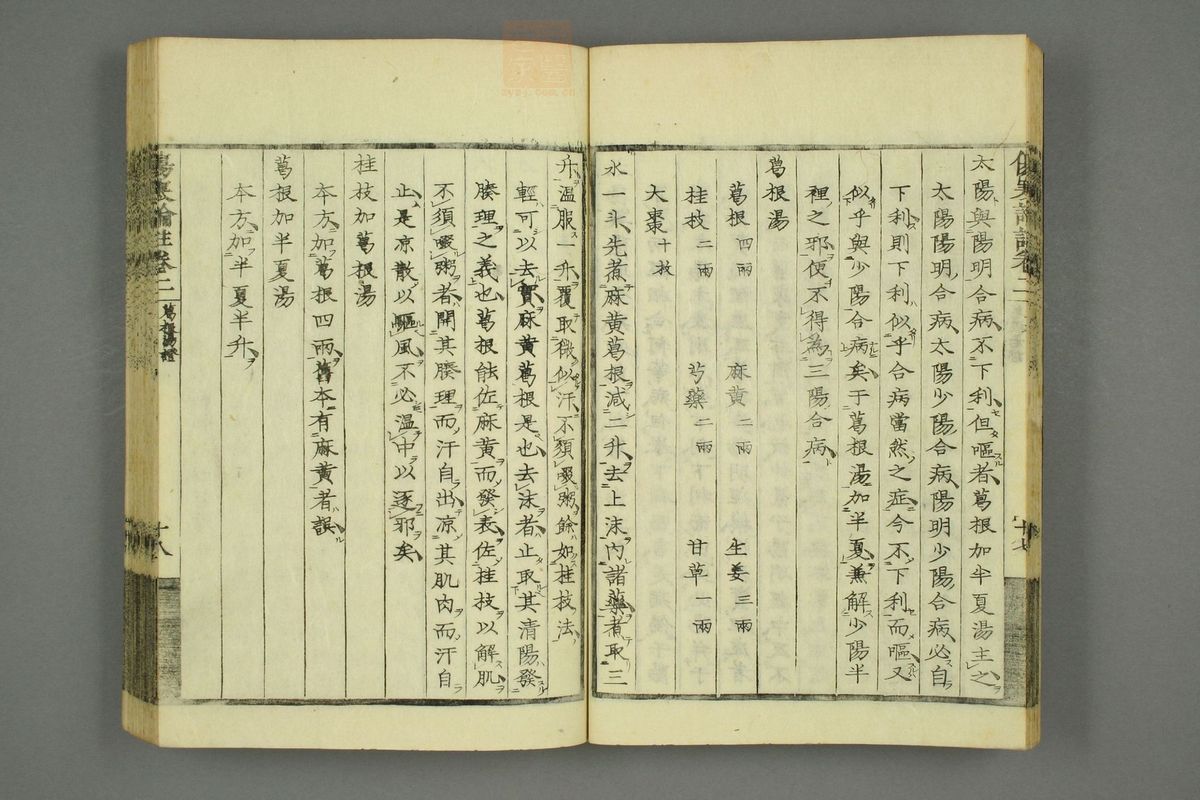 太陽與陽明合病不下利但嘔者葛根加半夏湯主之
太陽陽明合病太陽少陽合病陽明少陽合病必自
下利則下利似乎合病當然之症今不下利而嘔又
似乎與少陽合病矣于葛根湯加半夏兼解少陽半
裡之邪便不得為三陽合病
葛根湯
葛根四兩 麻黃二兩 生姜三兩
桂枝二兩 芍藥二兩 甘草一兩
大棗十枚
水一斗先煮麻黃葛根減二升去上沫內諸藥煮取三
升溫服一升覆取微似汗不須啜粥餘如桂枝法
輕可以去實麻黃葛根是也去沫者止取其清陽發
腠理之義也葛根能佐麻黃而發表佐桂枝以解肌
不須啜粥者開其腠理而汗自出凉其肌肉而汗自
止是凉散以驅風不必溫中以逐邪矣
桂枝加葛根湯
本方加葛根四兩舊本有麻黃者誤
葛根加半夏湯
本方加半夏半升
傷寒論註卷二 葛根湯證 十八